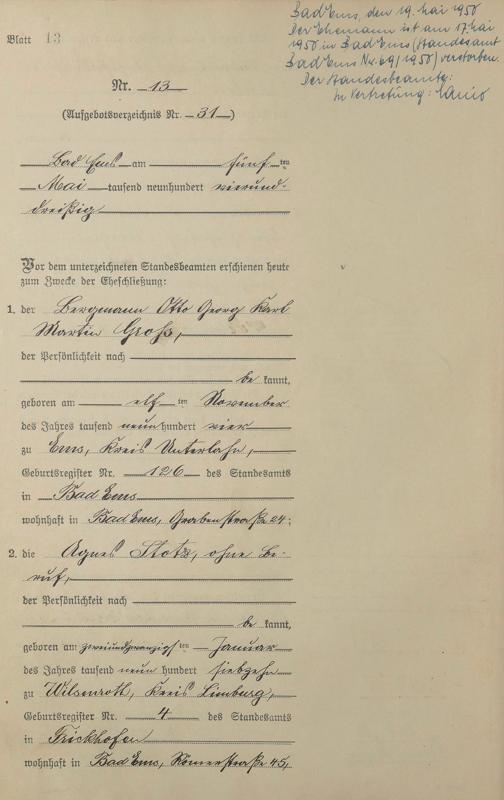 Blatt 13
Bad Ems, den 19. Mai 1950
Der Ehemann ist am 17. Mai
1950 in Bad Ems (Standesamt
Bad Ems Nr. 69/1950) verstorben.
Der Standesbeamte:
In Vertretung:
Nr. 13
(Aufgebotsverzeichnis Nr. 31)
Bad Ems am fünften
Mai tausend neunhundert vierund-
dreißig
Vor dem unterzeichneten Standesbeamten erschienen heute
zum Zwecke der Eheschließung:
1. der Bergmann Otto Georg Karl
Martin Groß,
der Persönlichkeit nach
be kannt,
geboren am elf ten November
des Jahres tausend neunhundert vier
zu Ems, Kreis Unterlahn,
Geburtsregister Nr. 126 des Standesamts
in Bad Ems
wohnhaft in Bad Ems, Grabenstraße 24;
2. die Agnes Stotz, ohne Be-
ruf,
der Persönlichkeit nach
be kannt,
geboren am zweiundzwanzigsten Januar
des Jahres tausend neun hundert siebzehn
zu Wilsenroth, Kreis Limburg,
Geburtsregister Nr. 4 des Standesamts
in Frickhofen
wohnhaft in Bad Ems, Römerstraße 45,